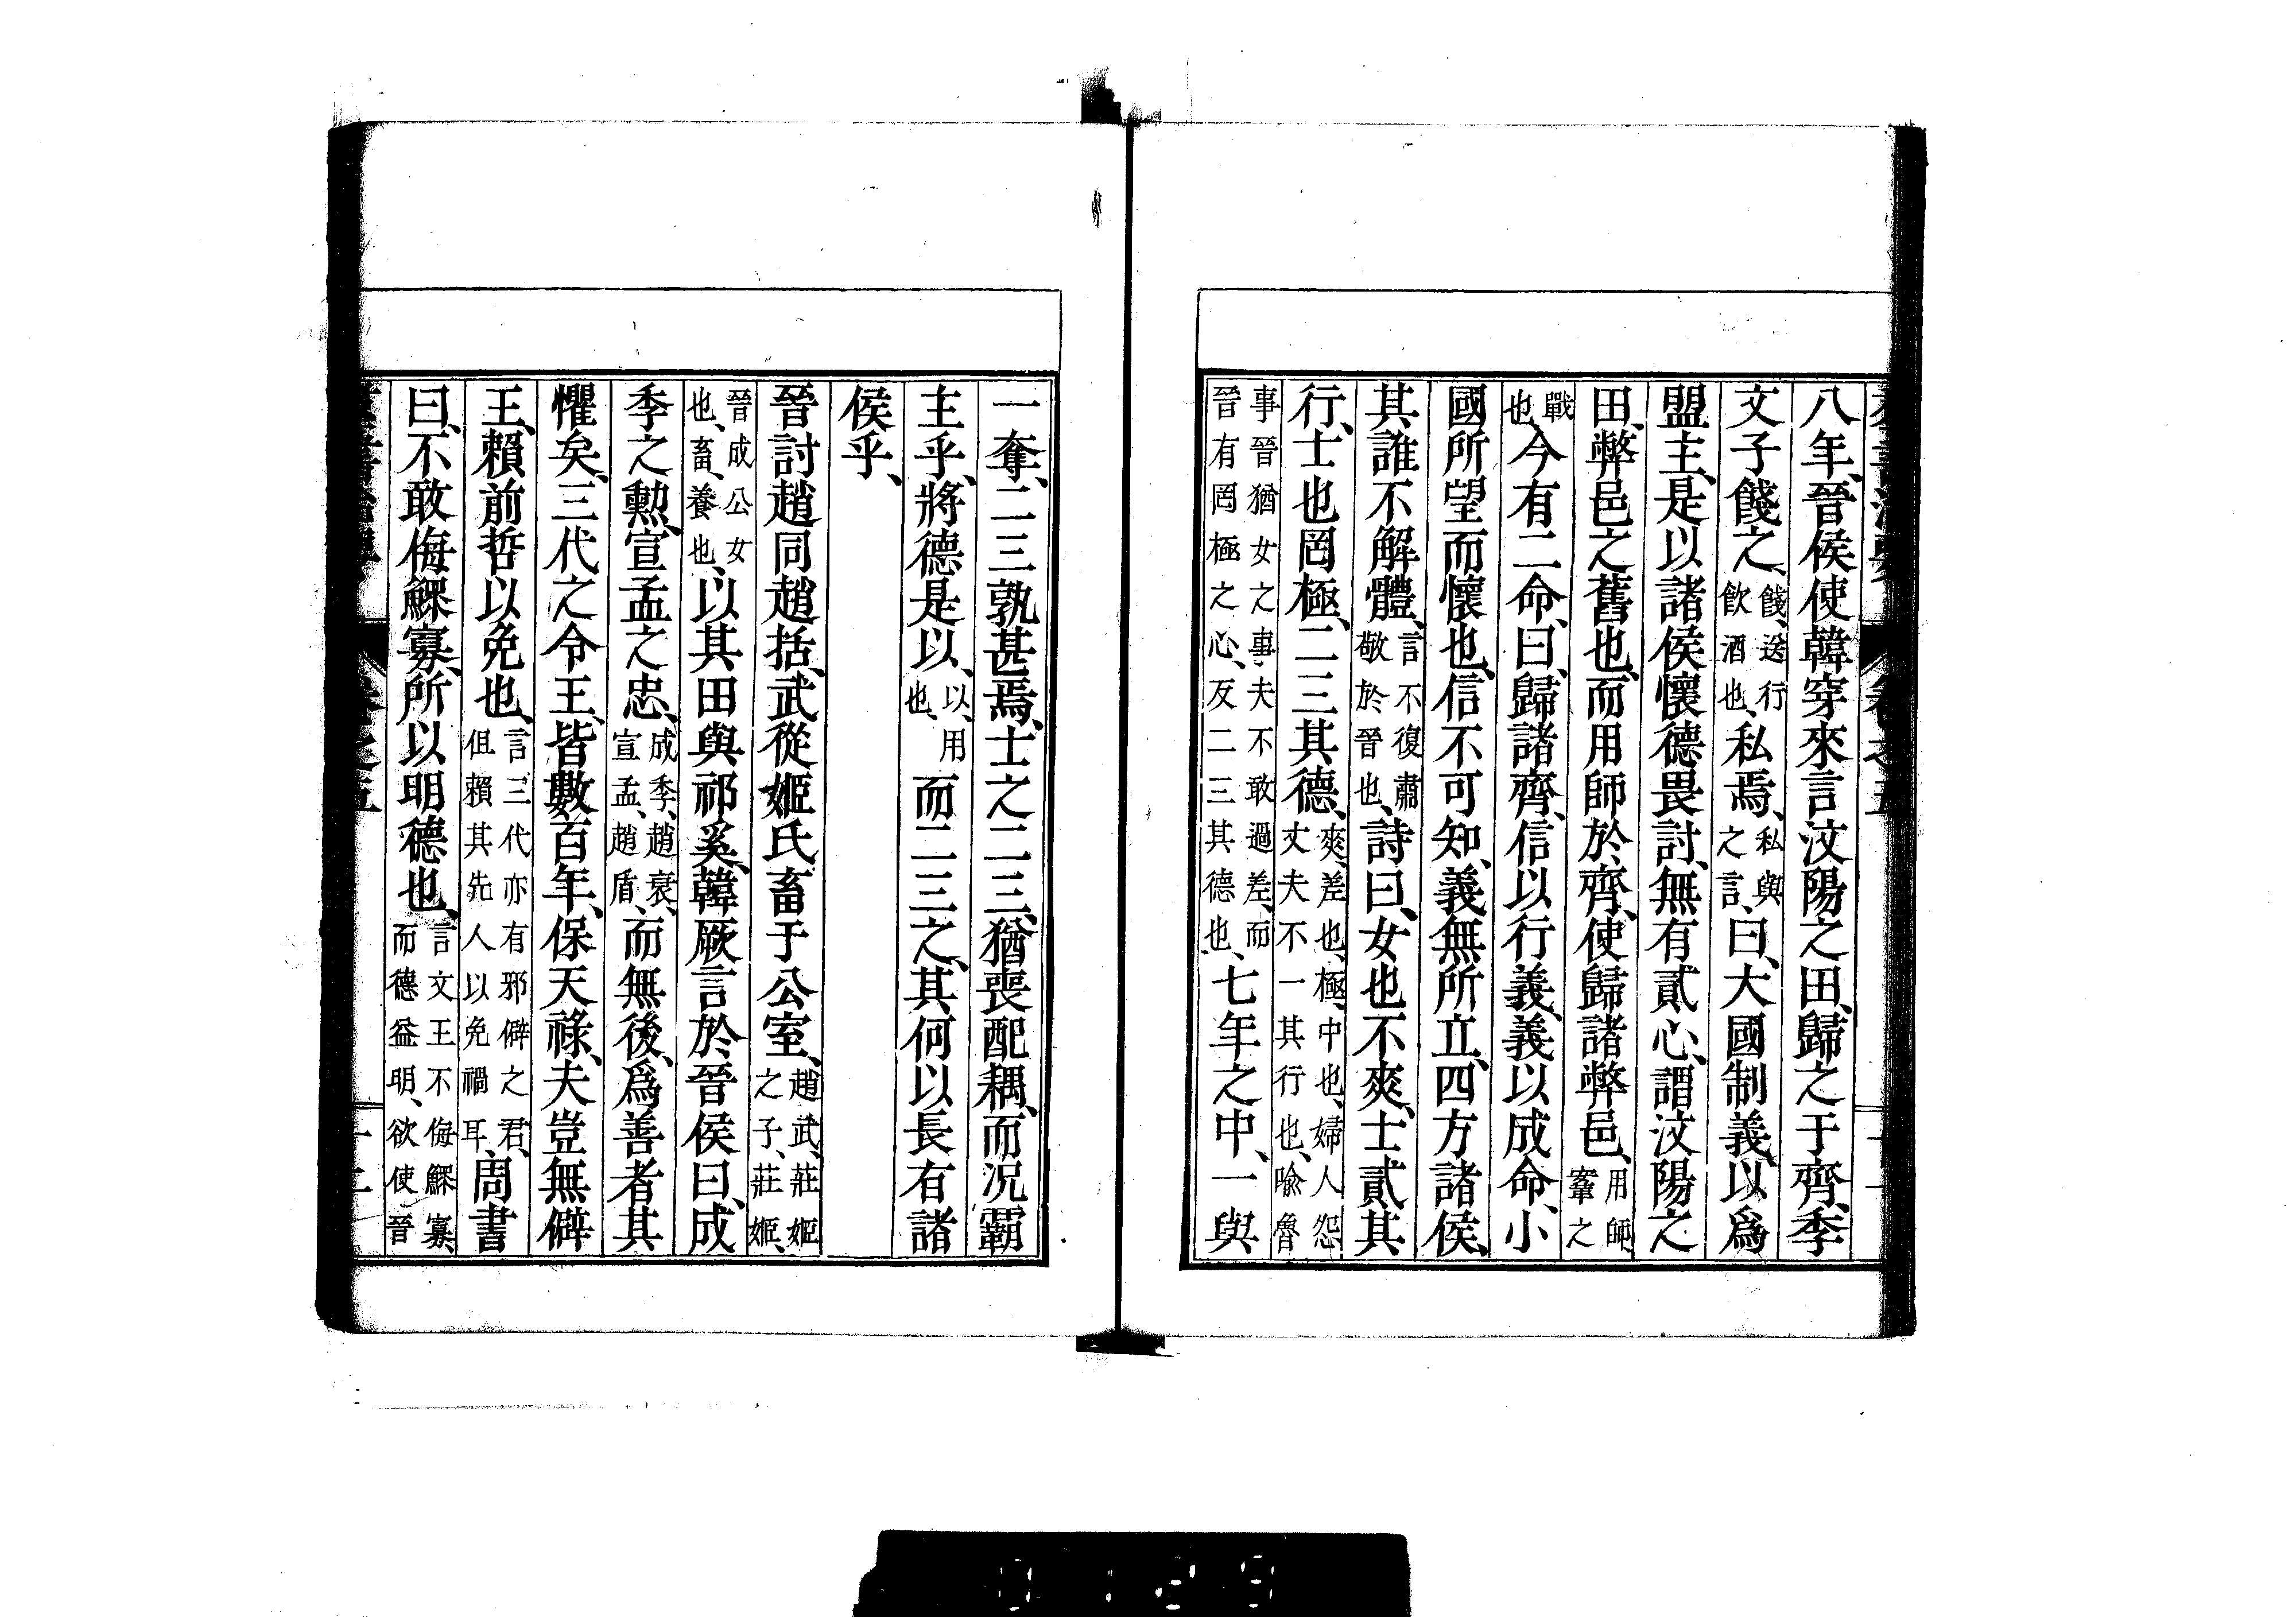 八年、晉侯使韓穿來言汶陽之田、歸之于齊、季
文子餞之、餞、送行飲酒也、私焉、私與之言、曰、大國制義、以爲
盟主、是以諸侯懷德畏討、無有貳心、謂汶陽之
田、弊邑之舊也、而用師於齊、使歸諸弊邑、用師、鞌之
戰也、今有二命、曰、歸諸齊、信以行義、義以成命、小
國所望而懷也、信不可知、義無所立、四方諸侯、
其誰不解體、言不復肅敬於晉也、詩曰、女也不爽、士貳其
行、士也罔極、二三其德、爽、差也、極、中也、婦人怨丈夫不一其行也、喩魯
事晉猶女之事夫不敢過差、而晉有罔極之心、反二三其德也、七年之中、一與
一奪、二三孰甚焉、士之二三、猶喪配耦、而況霸
主乎、將德是以、以、用也、而二三之、其何以長有諸
侯乎、
晉討趙同趙括、武從姬氏畜于公室、趙武、莊姬之子、莊姬、
晉成公女也、畜、養也、以其田與祁奚、韓厥言於晉侯曰、成
季之勲、宣孟之忠、成季、趙衰、宣孟、趙盾、而無後、爲善者其
懼矣、三代之令王、皆數百年、保天祿、夫豈無僻
王、賴前哲以免也、言三代亦有邪僻之君、但賴其先人以免禍耳、周書
曰、不敢侮鰥寡、所以明德也、言文王不侮鰥寡、而德益明、欲使晉